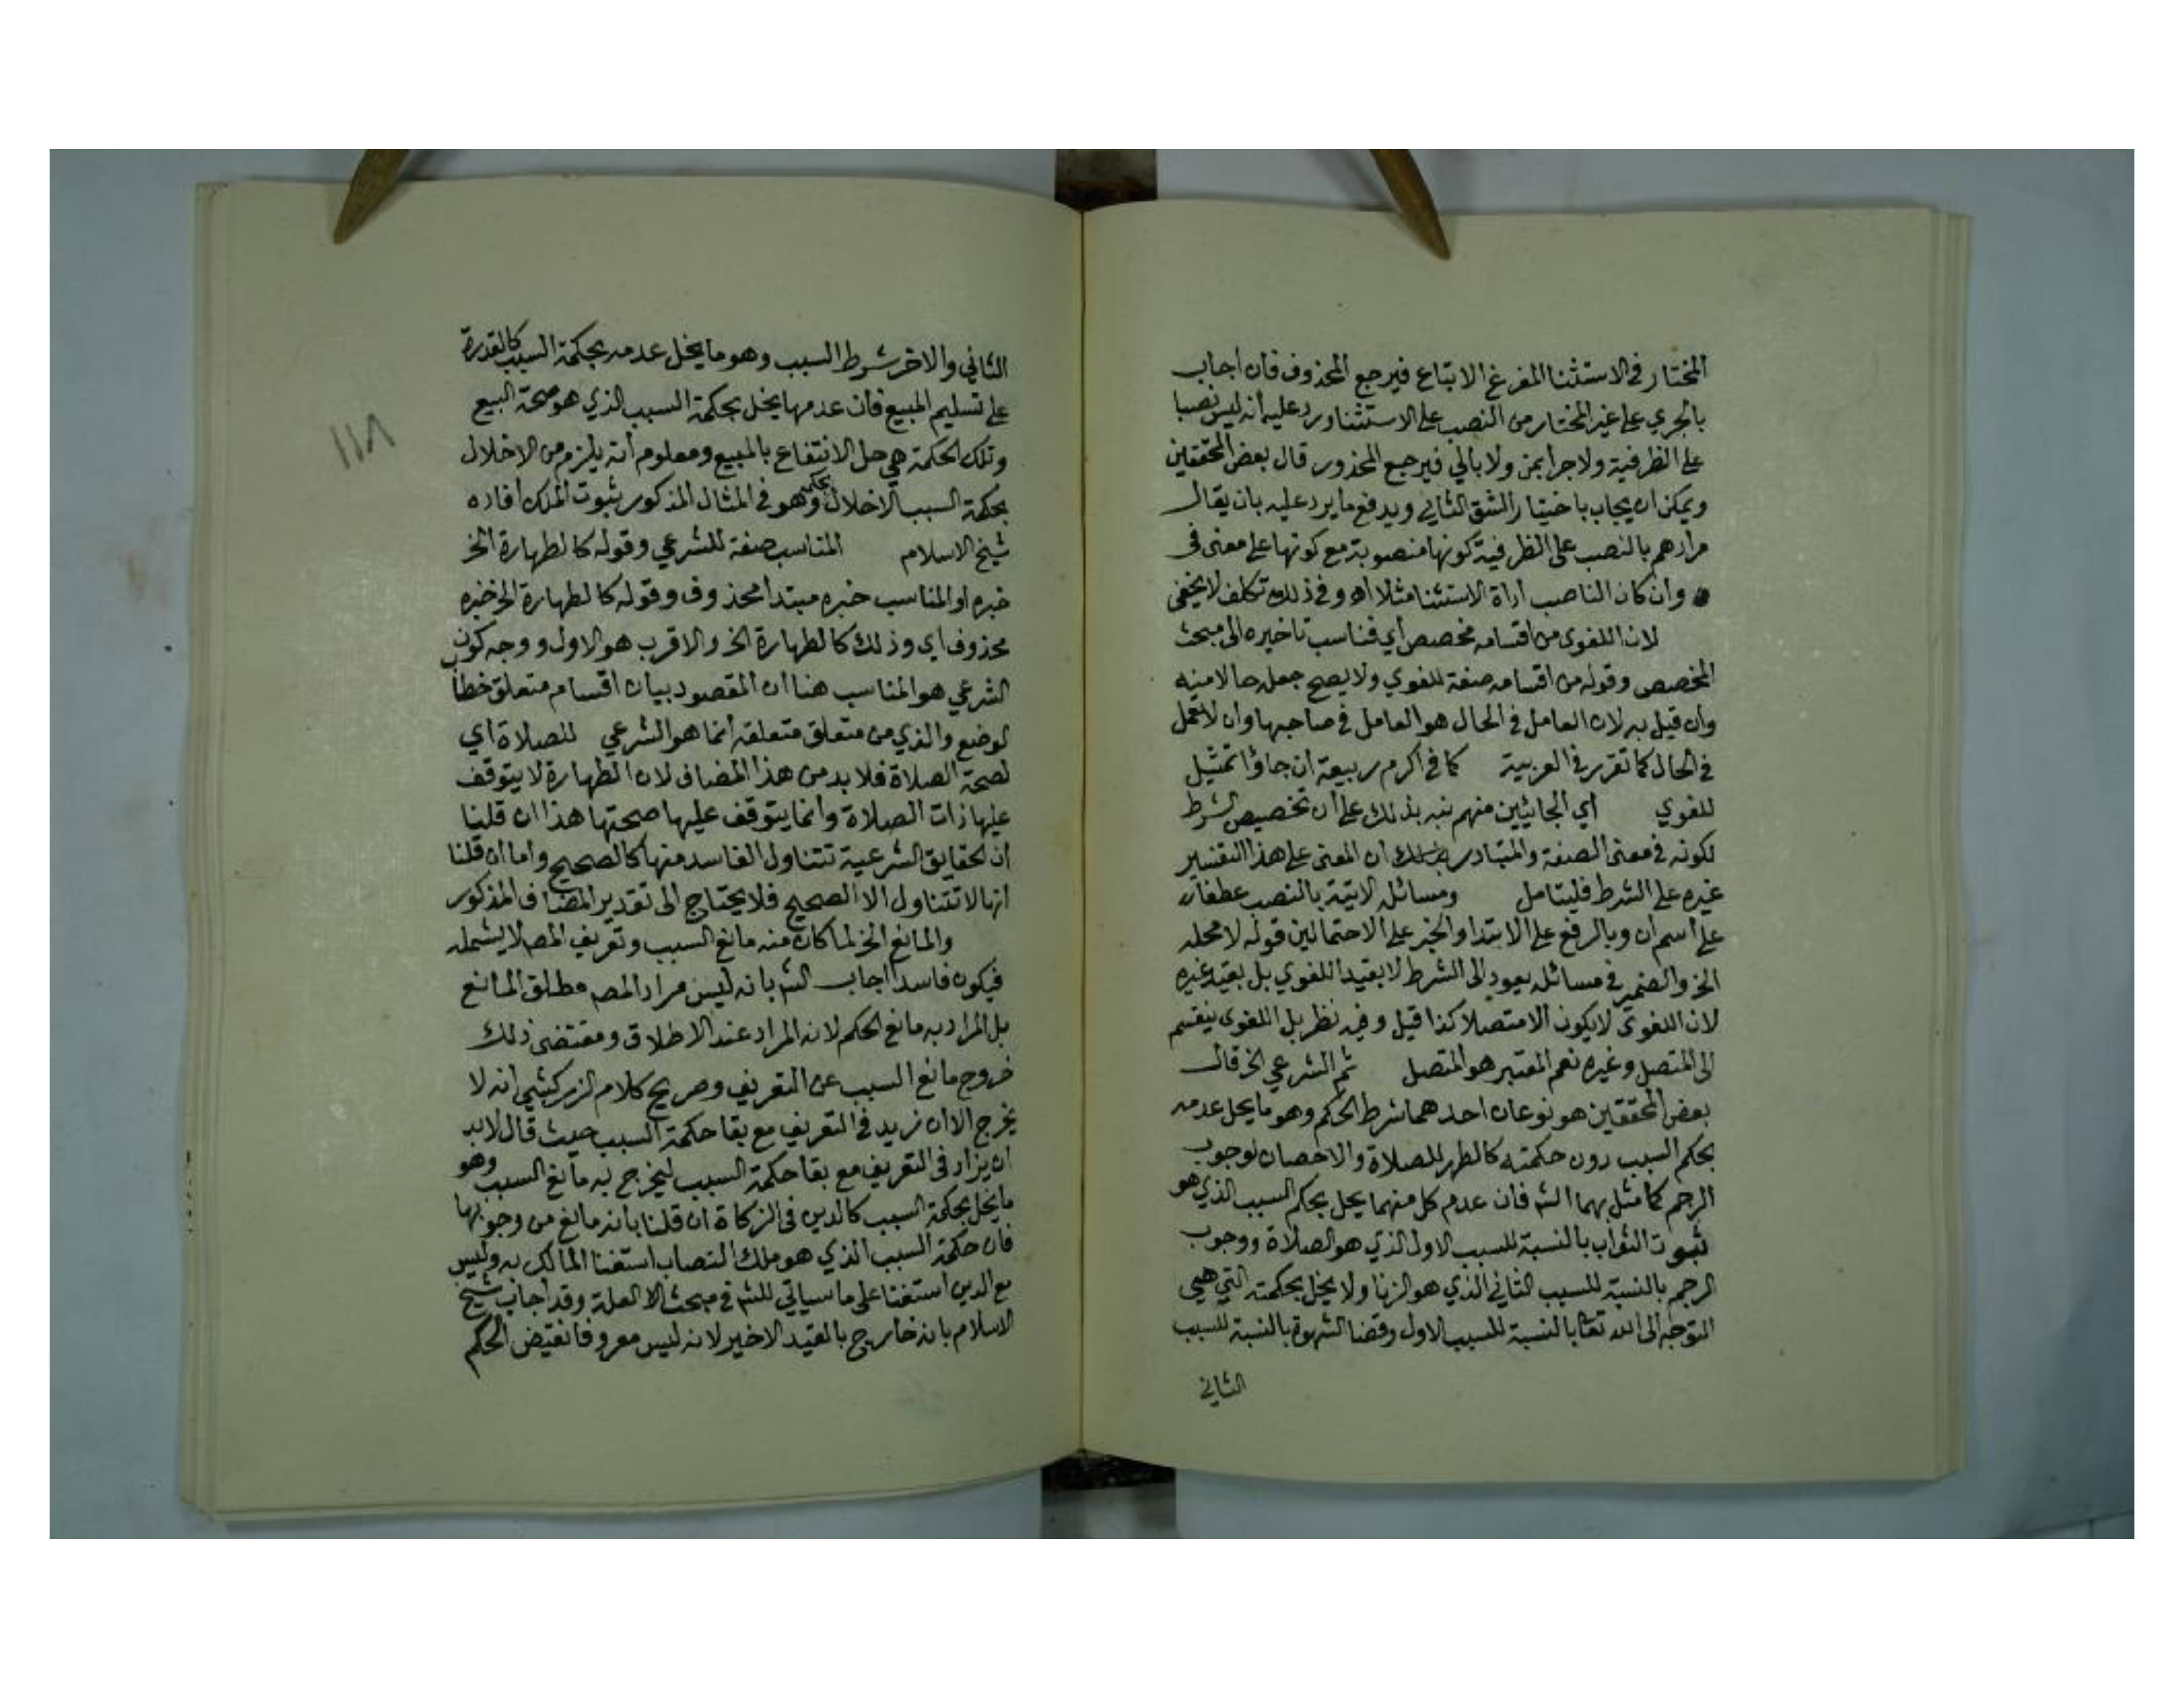 المختار في الاستثنا المفرغ الاتباع فيرجع المحذوف فان اجاب
بالجري على غير المختار من النصب على الاستثنا ورد عليه انه ليس نصبا
على الظرفية ولا جرا بمن ولا بالي فيرجع المحذور قال بعض المحققين
ويمكن ان يجاب باختيار الشق الثاني ويدفع ما يرد عليه بان يقال
مرادهم بالنصب على الظرفية كونها منصوبة مع كونها على معنى في
وان كان الناصب اداة الاستثنا مثلا اه وفي ذلك تكلف لا يخفى
لان اللغوي من اقسامه مخصص اي فناسب تاخيره الى مبحث
المخصص وقوله من اقسامه صفة للغوي ولا يصح جعله حالا منه
وان قيل به لان العامل في الحال هو العامل في صاحبها وان لا عمل
في الحال كما تقرر في العربية كما في اكرم ربيعة ان جاؤا تمثيل
للغوي اي الجائيين منهم نبه بذلك على ان تخصيص الشرط
لكونه في معنى الصفة والمتبادر ان المعنى على هذا التفسير
غيره على الشرط فليتامل ومسائله الاتية بالنصب عطفا
على اسم ان وبالرفع على الابتدا والخبر على الاحتمالين قوله لا محله
الخ والضمير في مسائله يعود الى الشرط لا بقيد اللغوي بل بقيد غيره
لان اللغوي لا يكون الا متصلا كذا قيل وفيه نظر بل اللغوي ينقسم
الى المتصل وغيره نعم المعتبر هو المتصل ثم الشرعي الخ قال
بعض المحققين هو نوعان احدهما شرط الحكم وهو ما يخل عدمه
بحكم السبب دون حكمته كالطهر للصلاة والاحصان لوجوب
الرجم كما مثل بهما الش فان عدم كل منهما يخل بحكم السبب الذي هو
ثبوت الثواب بالنسبة للسبب الاول الذي هو الصلاة ووجوب
الرجم بالنسبة للسبب الثاني الذي هو الزنا ولا يخل بحكمته التي هي
التوجه الى الله تعا بالنسبة للسبب الاول وقضا الشهوة بالنسبة للسبب
الثاني
الثاني والاخر شرط السبب وهو ما يخل عدمه بحكمة السبب كالقدرة
على تسليم المبيع فان عدمها يخل بحكمة السبب الذي هو صحة البيع
وتلك الحكمة هي حل الانتفاع بالمبيع ومعلوم انه يلزم من الاخلال
بحكمة السبب الاخلال بحكمه وهو في المثال المذكور ثبوت الملك افاده
شيخ الاسلام المناسب صفة للشرعي وقوله كالطهارة الخ
خبره او المناسب خبره مبتدا محذوف وقوله كالطهارة الخ خبره
محذوف اي وذلك كالطهارة الخ والاقرب هو الاول ووجه كون
الشرعي هو المناسب هنا ان المقصود بيان اقسام متعلق خطاب
الوضع والذي من متعلق متعلقه انما هو الشرعي للصلاة اي
لصحة الصلاة فلا بد من هذا المضاف لان الطهارة لا يتوقف
عليها ذات الصلاة وانما يتوقف عليها صحتها هذا ان قلنا
ان الحقايق الشرعية تتناول الفاسد منها كالصحيح واما ان قلنا
انها لا تتناول الا الصحيح فلا يحتاج الى تقدير المضاف المذكور
والمانع الخ لما كان منه مانع السبب وتعريف المص لا يشمله
فيكون فاسدا اجاب الش بانه ليس مراد المص مطلق المانع
بل المراد به مانع الحكم لانه المراد عند الاطلاق ومقتضى ذلك
خروج مانع السبب عن التعريف وصريح كلام الزركشي انه لا
يخرج الا ان زيد في التعريف مع بقا حكمة السبب حيث قال لابد
ان يزاد في التعريف مع بقا حكمة السبب ليخرج به مانع السبب وهو
ما يخل بحكمة السبب كالدين في الزكاة ان قلنا بانه مانع من وجوبها
فان حكمة السبب الذي هو ملك النصاب استغنا المالك به وليس
مع الدين استغنا على ما سياتي للش في مبحث الا العلة وقد اجاب شيخ
الاسلام بانه خارج بالقيد الاخير لانه ليس معروفا نقيض الحكم
١١٨